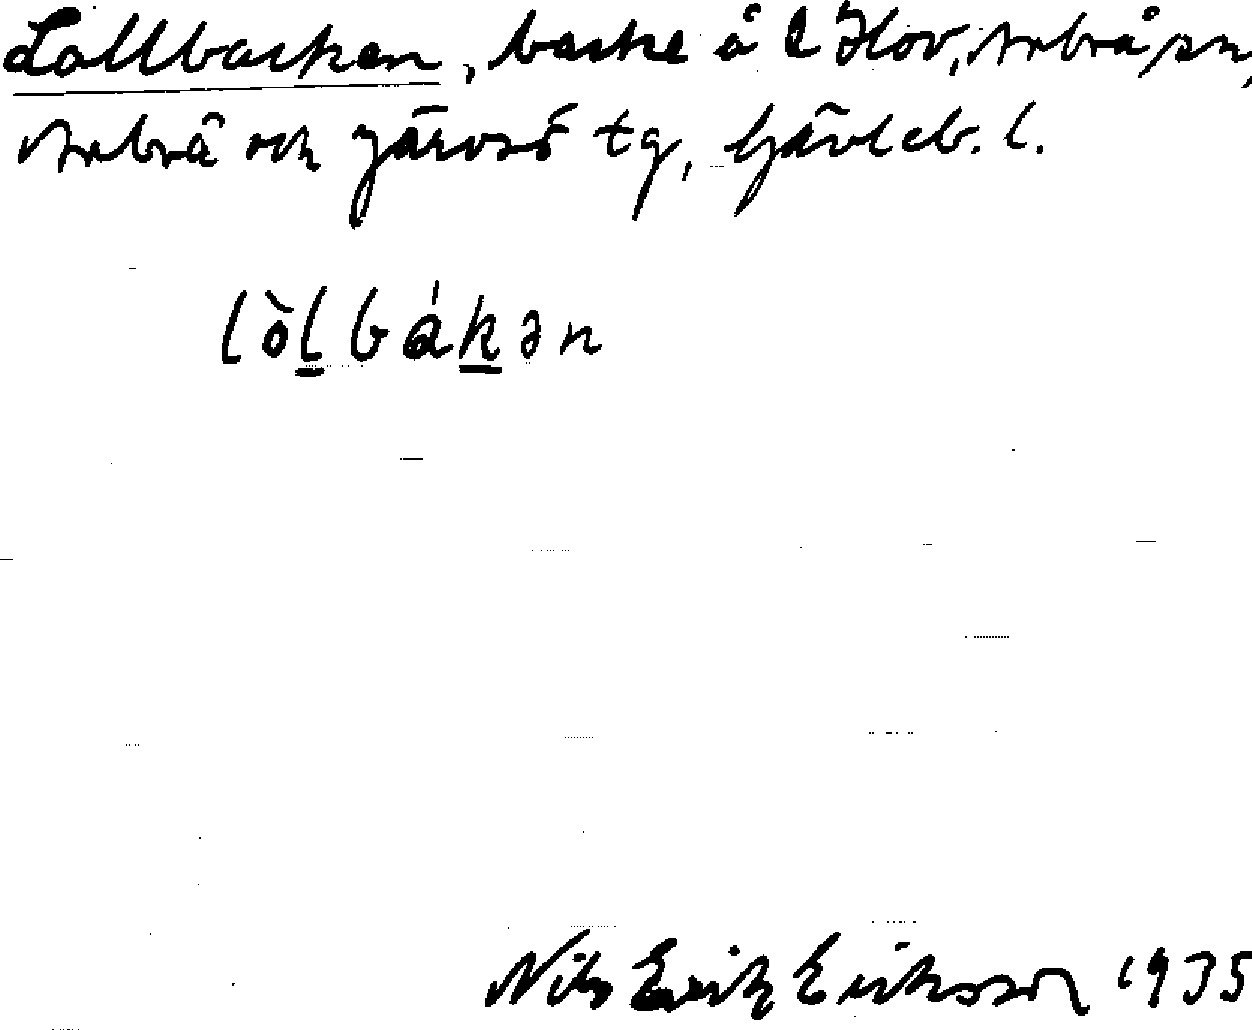 Lollbacken, backe å l Hov, Arbrå sn,
Arbrå och Järvsö tg, Gävleb. l.
lòlbákən
Nils Erik Eriksson 1935